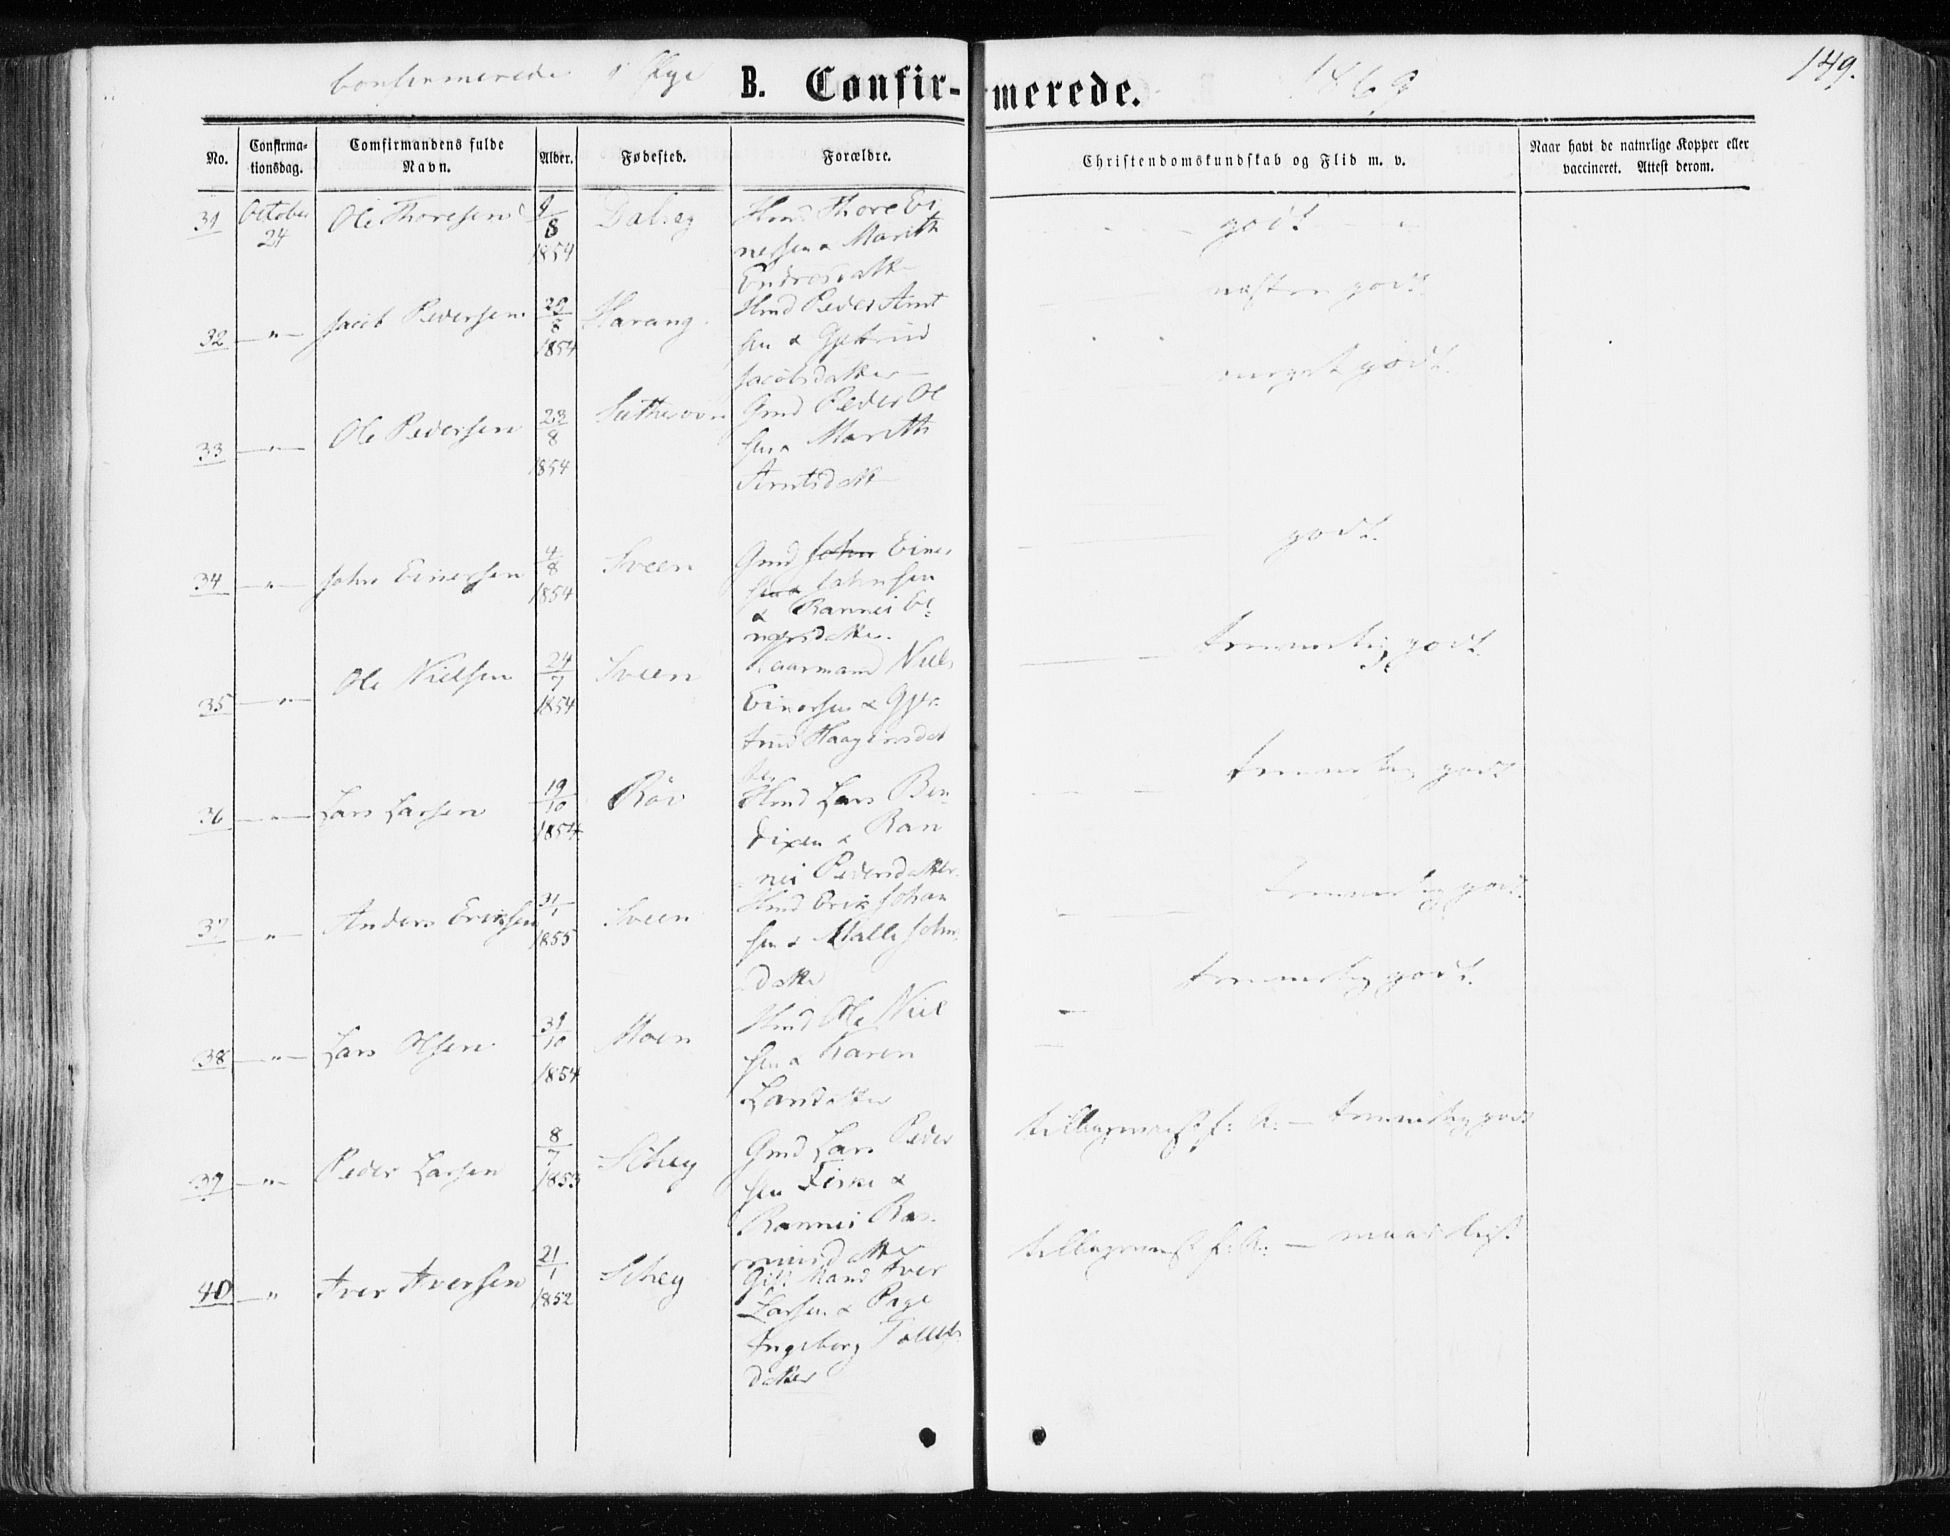 Confirmerede i Øye
B. Confirmerede.
1869
149.
No.
Confirma-
tionsdag.
Comfirmandens fulde
Navn.
Alder.
Fødested.
Forældre.
Christendomskundskab og Flid m. v.
Naar havt de naturlige Kopper eller
vaccineret. Attest derom.
31 October 24 Ole Thoresen 9/8 1854 Dalseg
Hmd Thore Ei
nersen & Marith
Endresdatter
godt
32 — " — Jacob Pedersen 20/8 1854 Harang
Hmd Peder Arnt
sen & Gjertrud
Jacobsdatter
næsten godt
33 — " — Ole Pedersen 23/8 1854
Gmd Peder Ol
sen & Marith
Arntsdatt
meget godt
34 — " — John Einersen 4/8 1854 Sveen
Gmd John Einer
sen & Johnsen
& Rannei Ei-
nersdatter.
godt.
35 — " — Ole Nielsen 24/7 1854 Sveen
Niels
Einersen & Gjer-
trud Haagensdat
ter
temmelig godt
36 — " — Lars Larsen 19/10 1854 Röv
Hmd Lars Ben-
dixen & Ran
nei Pedersdatter
temmelig godt
37 — " — Anders Eriksen 31/1 1855 Sveen
Hmd Erik Johan
sen & Malli John
datter
temmelig godt
38 — " — Lars Olsen 31/10 1854 Moen
Hmd Ole Niel
sen & Karen
Larsdatter
temmelig godt.
39 — " — Peder Larsen 8/7 1853 Schey
Gmd Lars Peder
sen &
Rannei Ras-
musdatter
temmelig godt
40 — " Iver Iversen 21/1 1852 Schey
Gift Mand Iver
Larsen & Pige
Ingeborg Tollefs
datter
maadeligt